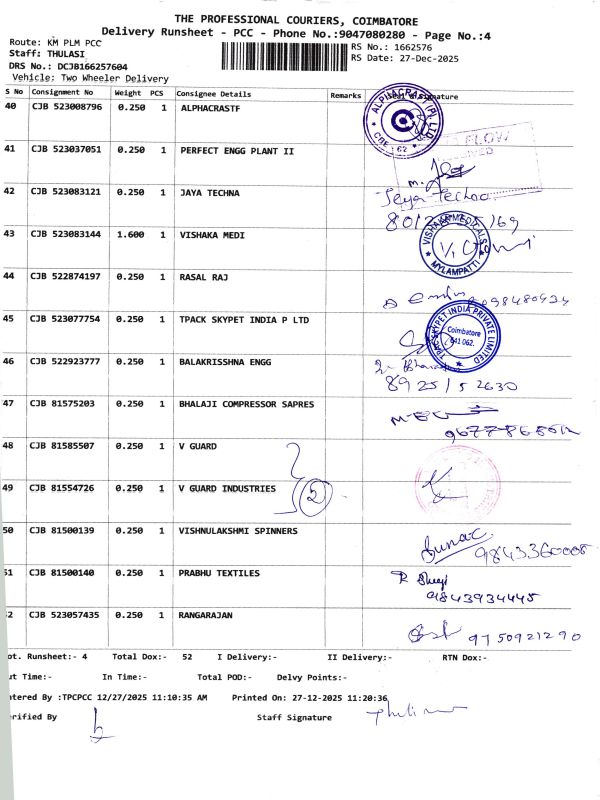 THE PROFESSIONAL COURIERS, COIMBATORE
Delivery Runsheet - PCC - Phone No.:9047080280 - Page No.:4
Route: KM PLM PCC
RS No.: 1662576
Staff: THULASI
RS Date: 27-Dec-2025
DRS No.: DCJB166257604
Vehicle: Two Wheeler Delivery
S No Consignment No Weight PCS Consignee Details Remarks
40 CJB 523008796 0.250 1 ALPHACRASTF
41 CJB 523037051 0.250 1 PERFECT ENGG PLANT II
FLOW
42 CJB 523083121 0.250 1 JAYA TECHNA
43 CJB 523083144 1.600 1 VISHAKA MEDI
VISHAKA MEDICALS
MYLAMPATTI
44 CJB 522874197 0.250 1 RASAL RAJ
45 CJB 523077754 0.250 1 TPACK SKYPET INDIA P LTD
TPACK SKYPET INDIA PRIVATE LIMITED
Coimbatore
641 062.
46 CJB 522923777 0.250 1 BALAKRISSHNA ENGG
47 CJB 81575203 0.250 1 BHALAJI COMPRESSOR SAPRES
48 CJB 81585507 0.250 1 V GUARD
49 CJB 81554726 0.250 1 V GUARD INDUSTRIES
2
50 CJB 81500139 0.250 1 VISHNULAKSHMI SPINNERS
51 CJB 81500140 0.250 1 PRABHU TEXTILES
9843934445
52 CJB 523057435 0.250 1 RANGARAJAN
9750921290
ot. Runsheet:- 4 Total Dox:- 52 I Delivery:- II Delivery:- RTN Dox:-
ut Time:- In Time:- Total POD:- Delvy Points:-
ntered By :TPCPCC 12/27/2025 11:10:35 AM Printed On: 27-12-2025 11:20:36
erified By Staff Signature